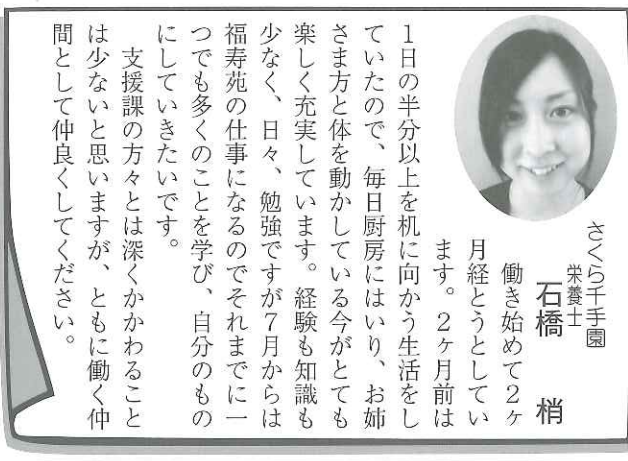 さくら千手園
栄養士
石橋　梢
働き始めて２ヶ
月経とうとしてい
ます。２ヶ月前は
１日の半分以上を机に向かう生活をし
ていたので、毎日厨房にはいり、お姉
さま方と体を動かしている今がとても
楽しく充実しています。経験も知識も
少なく、日々、勉強ですが７月からは
福寿苑の仕事になるのでそれまでに一
つでも多くのことを学び、自分のもの
にしていきたいです。
支援課の方々とは深くかかわること
は少ないと思いますが、ともに働く仲
間として仲良くしてください。